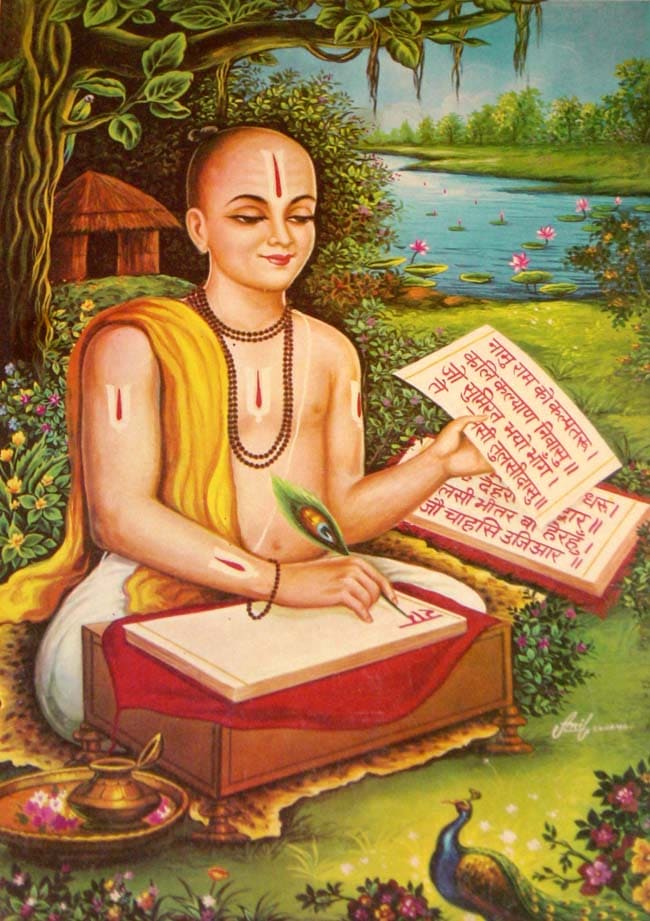 नामु राम को कल्पतरू।
कलि कल्याण निवासु॥
जौ सुमिरत भयो भाँग।
तुलसीदासु॥
धरू।
लसी भीतर बाहेरहूँ।
जौ चाहासि उजिआर॥
राम